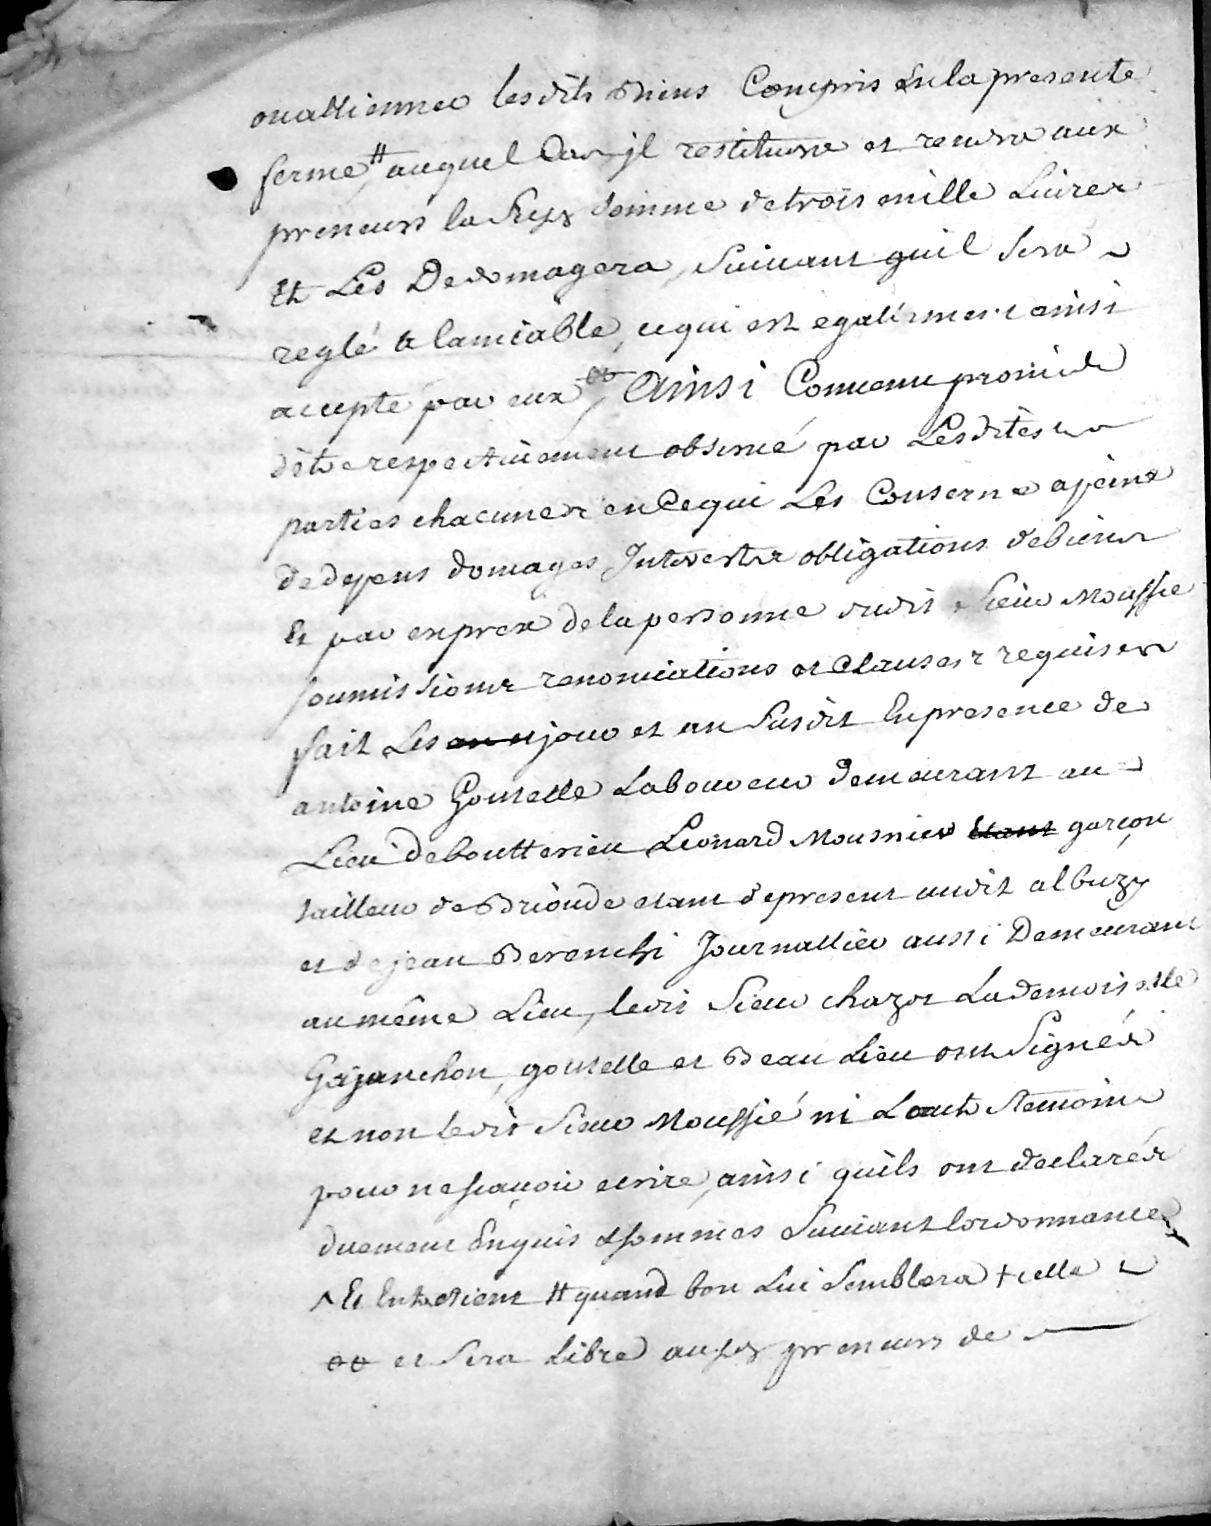 ou alliennes les dits Biens Compris En la presente
ferme # auquel Cas jl restituera et rendra aux
preneurs la somme de trois mille Livres
Et Les Dedomagera, Suivant quil sera
reglé a lamiable, ce qui est egallement ainsi
accepté par eux ⱺⱺ, Ainsi Convenu promis et
d'être respectivement observé par Lesdites
parties chacunes en Cequi Les Conserne a peine
de depens domages Interests obligations de biens
Et par exprex de la personne dudit Sieur Moussié
soumissions renonciations et clauses requises
fait Les jour et an Susdit En presence de
antoine Goutelle Laboureur demeurant au
Lieu de Léonard Mousnier garçon
tailleur de Brioude etant depresent audit albuzy
et de jean Journallier aussi Demeurant
au même Lieu, ledit Sieur chazot La demoiselle
Gajanchon, goutelle et Beaulieu ont Signés
et non ledit Sieur Moussié ni Lautre temoin
pour ne sçavoir ecrire, ainsi quils ont declarés
duement Enquis et sommés Suivant lordonnance
^ Et Entretient # quand bon Lui Semblera + celle
ⱺⱺ et sera Libre aux preneurs de